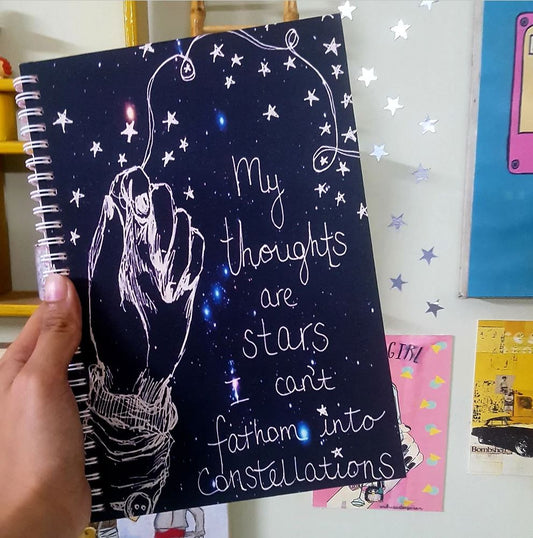 My
thoughts
are
stars
I can't
fathom into
constellations
GIRL
Bombshell